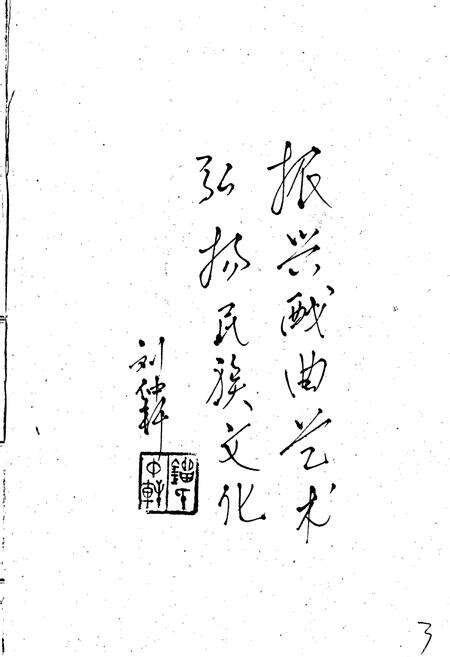 振兴戏曲艺术
弘扬民族文化
刘仲轩
3